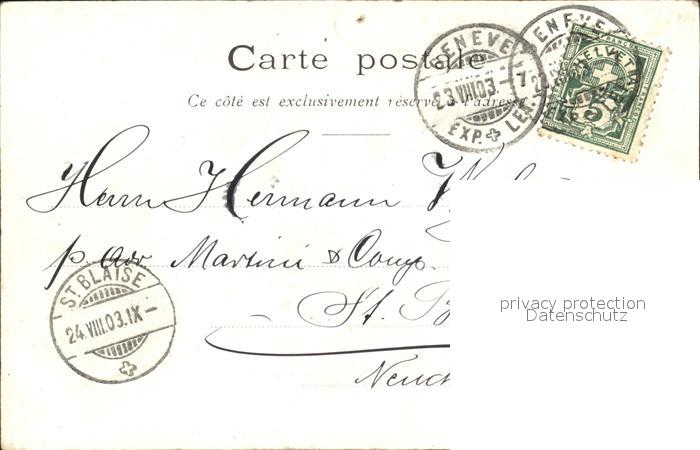 Carte postale
Ce côté est exclusivement réservé à l'adresse
GENÈVE
23.VIII.03.-7
EXP.
GENÈVE
HELVETIA
5
Herrn Hermann
p. Adr Martini & Comp.
St.
ST. BLAISE
24.VIII.03.IX-
privacy protection
Datenschutz